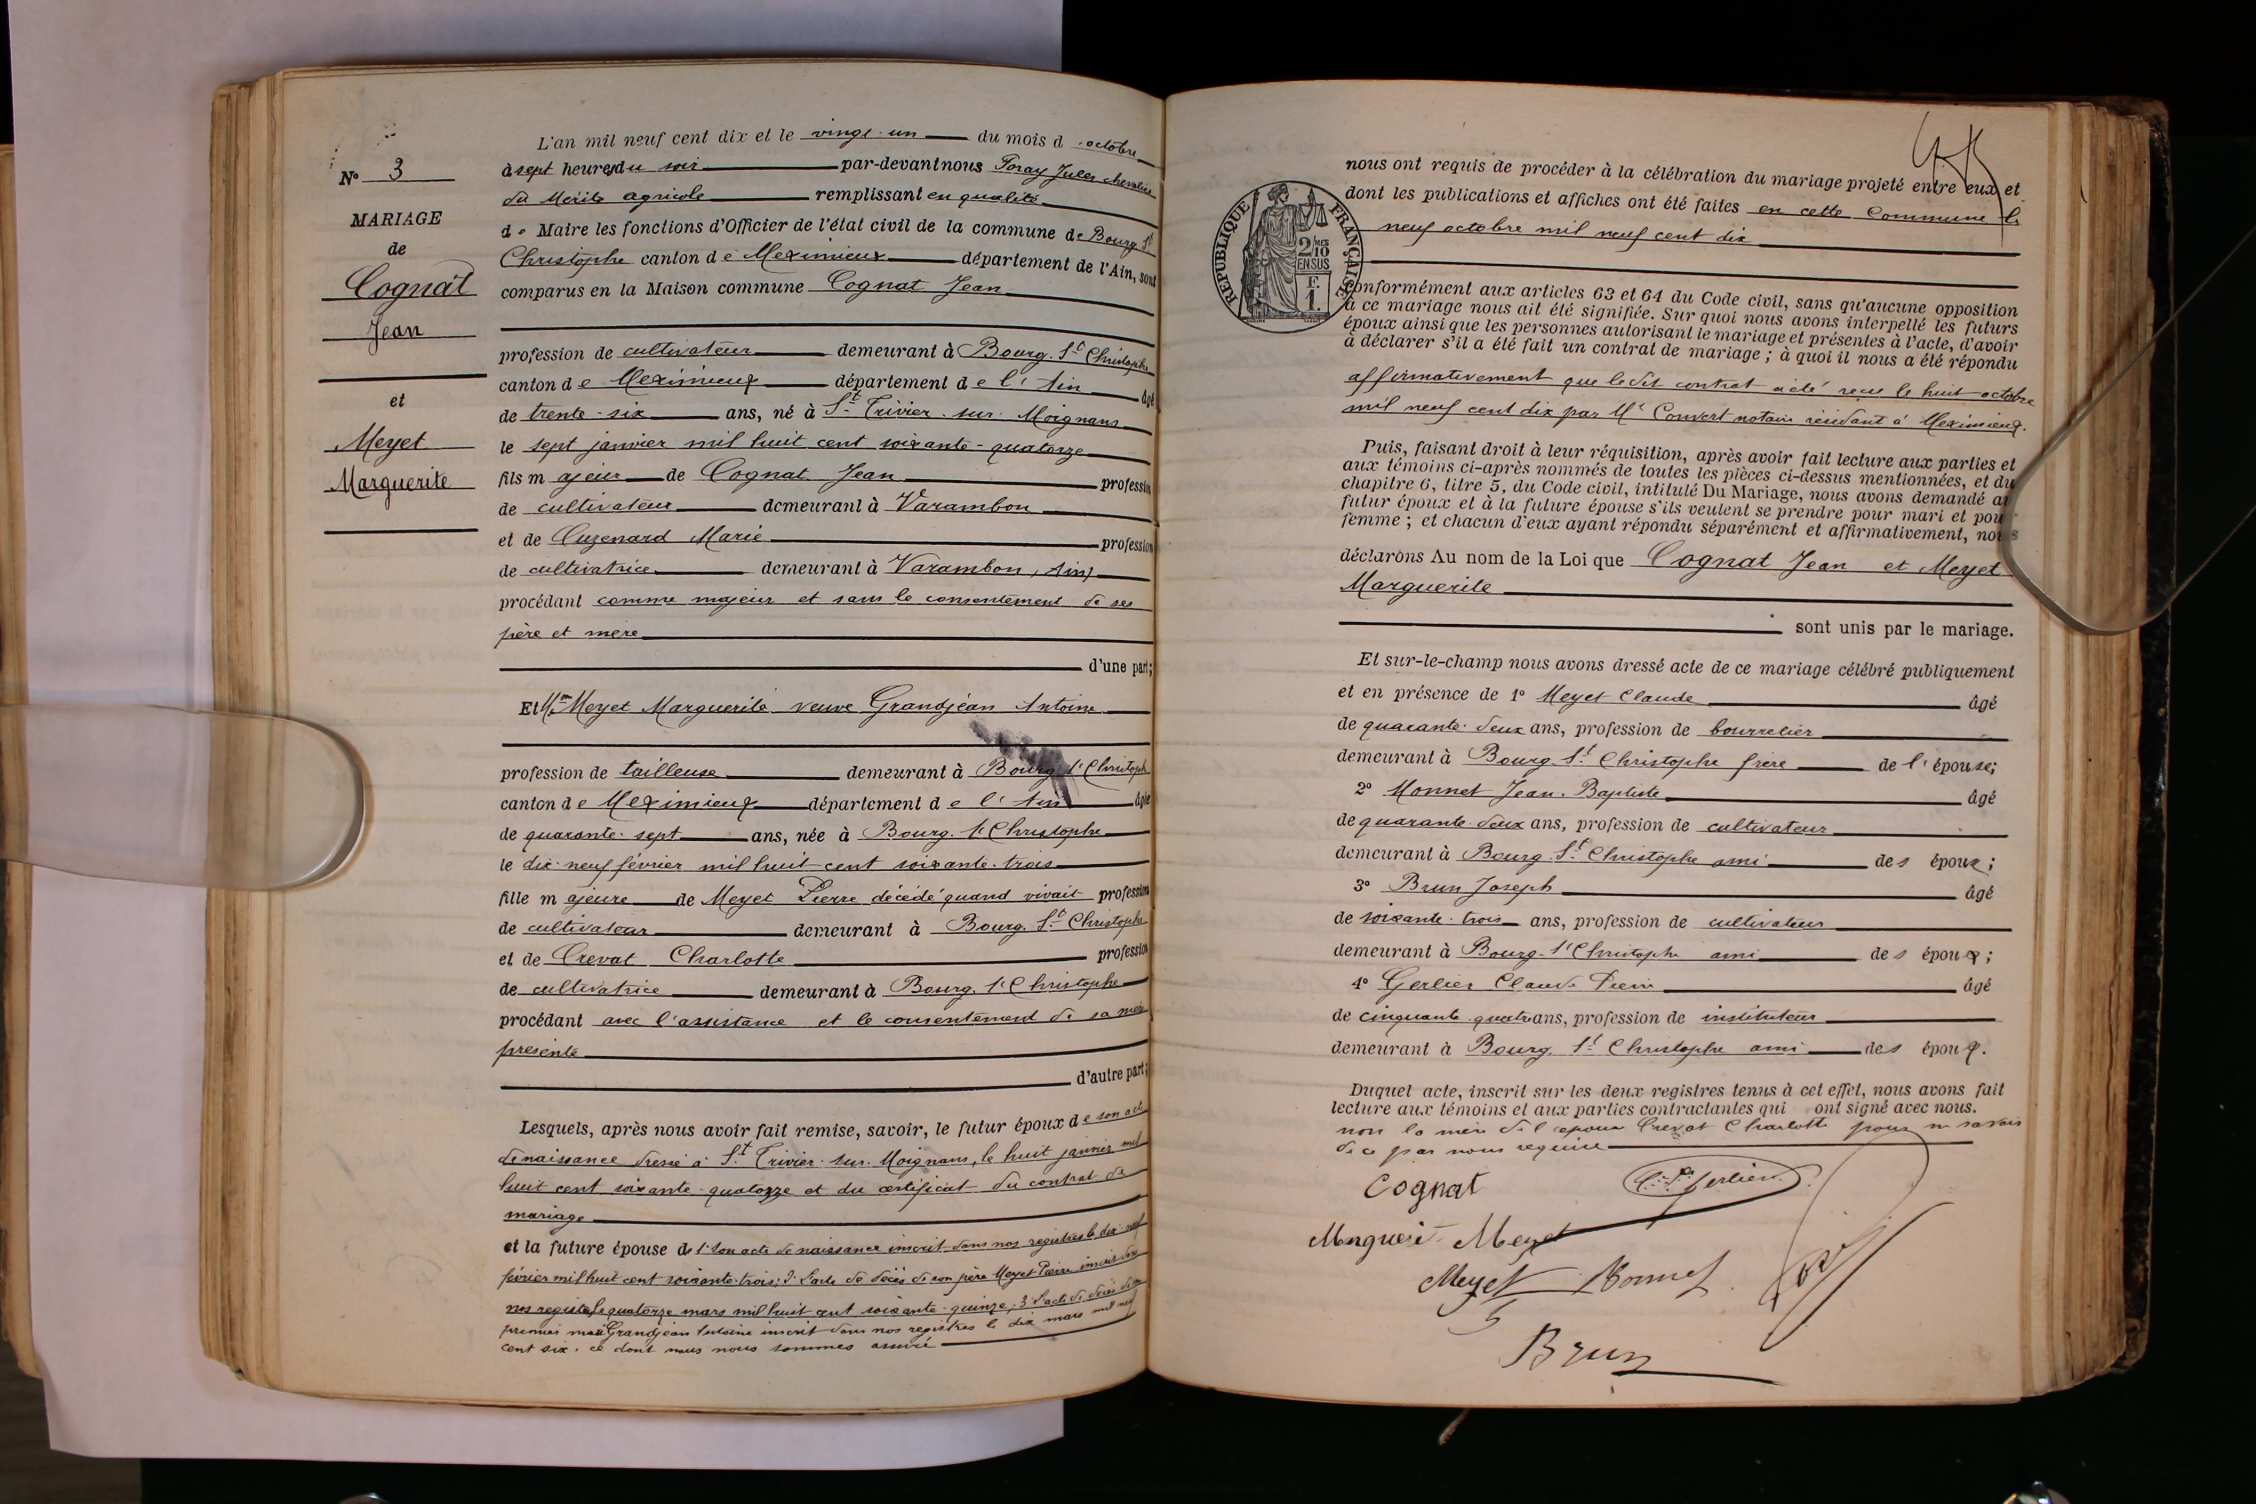 L'an mil neuf cent dix et le vingt-un du mois d octobre
N° 3
à sept heures du soir par-devant nous Foray Jules chevalier
du Mérite agricole remplissant en qualité
MARIAGE
de Maire les fonctions d'Officier de l'état civil de la commune de Bourg St
de
Christophe canton de Meximieux département de l'Ain, sont
Cognat
comparus en la Maison commune Cognat Jean
Jean
profession de cultivateur demeurant à Bourg St Christophe
canton de Meximieux département de l'Ain âgé
et
de trente-six ans, né à St Trivier-sur-Moignans
Meyet
le sept janvier mil huit cent soixante-quatorze
Marguerite
fils majeur de Cognat Jean profession
de cultivateur demeurant à Varambon
et de Cuzenard Marie profession
de cultivatrice demeurant à Varambon, (Ain)
procédant comme majeur et sans le consentement de ses
père et mère
d'une part;
Et Mme Meyet Marguerite veuve Grandjean Antoine
profession de tailleuse demeurant à Bourg St Christophe
canton de Meximieux département de l'Ain âgée
de quarante-sept ans, née à Bourg St Christophe
le dix-neuf février mil huit cent soixante-trois
fille majeure de Meyet Pierre décédé quand vivait profession
de cultivateur demeurant à Bourg St Christophe
et de Crevat Charlotte profession
de cultivatrice demeurant à Bourg St Christophe
procédant avec l'assistance et le consentement de sa mère
présente
d'autre part;
Lesquels, après nous avoir fait remise, savoir, le futur époux de son acte
de naissance dressé à St Trivier-sur-Moignans, le huit janvier mil
huit cent soixante-quatorze et du certificat du contrat de
mariage
et la future épouse de 1° son acte de naissance inscrit dans nos registres le dix-neuf
février mil huit cent soixante-trois; 2° l'acte de décès de son père Meyet Pierre inscrit dans
nos registres le quatorze mars mil huit cent soixante-quinze; 3° l'acte de décès de son
premier mari Grandjean Antoine inscrit dans nos registres le dix mars mil neuf
cent six. ce dont nous nous sommes assuré
nous ont requis de procéder à la célébration du mariage projeté entre eux et
dont les publications et affiches ont été faites en cette Commune le
neuf octobre mil neuf cent dix
RÉPUBLIQUE FRANÇAISE
2/10 MES
EN SUS
F.
1.
conformément aux articles 63 et 64 du Code civil, sans qu'aucune opposition
à ce mariage nous ait été signifiée. Sur quoi nous avons interpellé les futurs
époux ainsi que les personnes autorisant le mariage et présentes à l'acte, d'avoir
à déclarer s'il a été fait un contrat de mariage; à quoi il nous a été répondu
affirmativement que ledit contrat a été reçu le huit octobre
mil neuf cent dix par Me Convert notaire résidant à Meximieux.
Puis, faisant droit à leur réquisition, après avoir fait lecture aux parties et
aux témoins ci-après nommés de toutes les pièces ci-dessus mentionnées, et du
chapitre 6, titre 5, du Code civil, intitulé Du Mariage, nous avons demandé au
futur époux et à la future épouse s'ils veulent se prendre pour mari et pour
femme; et chacun d'eux ayant répondu séparément et affirmativement, nous
déclarons Au nom de la Loi que Cognat Jean et Meyet
Marguerite
sont unis par le mariage.
Et sur-le-champ nous avons dressé acte de ce mariage célébré publiquement
et en présence de 1° Meyet Claude âgé
de quarante-deux ans, profession de bourrelier
demeurant à Bourg St Christophe frère de l'épouse;
2° Monnet Jean-Baptiste âgé
de quarante-deux ans, profession de cultivateur
demeurant à Bourg St Christophe ami des époux;
3° Brun Joseph âgé
de soixante-trois ans, profession de cultivateur
demeurant à Bourg St Christophe ami des époux;
4° Gerlier Claude Pierre âgé
de cinquante-quatre ans, profession de instituteur
demeurant à Bourg St Christophe ami des époux.
Duquel acte, inscrit sur les deux registres tenus à cet effet, nous avons fait
lecture aux témoins et aux parties contractantes qui ont signé avec nous.
non la mère de l'épouse Crevat Charlotte pour ne savoir
de ce par nous requise
Cognat C. P. Gerlier
Marguerite Meyet
Meyet Monnet
Brun